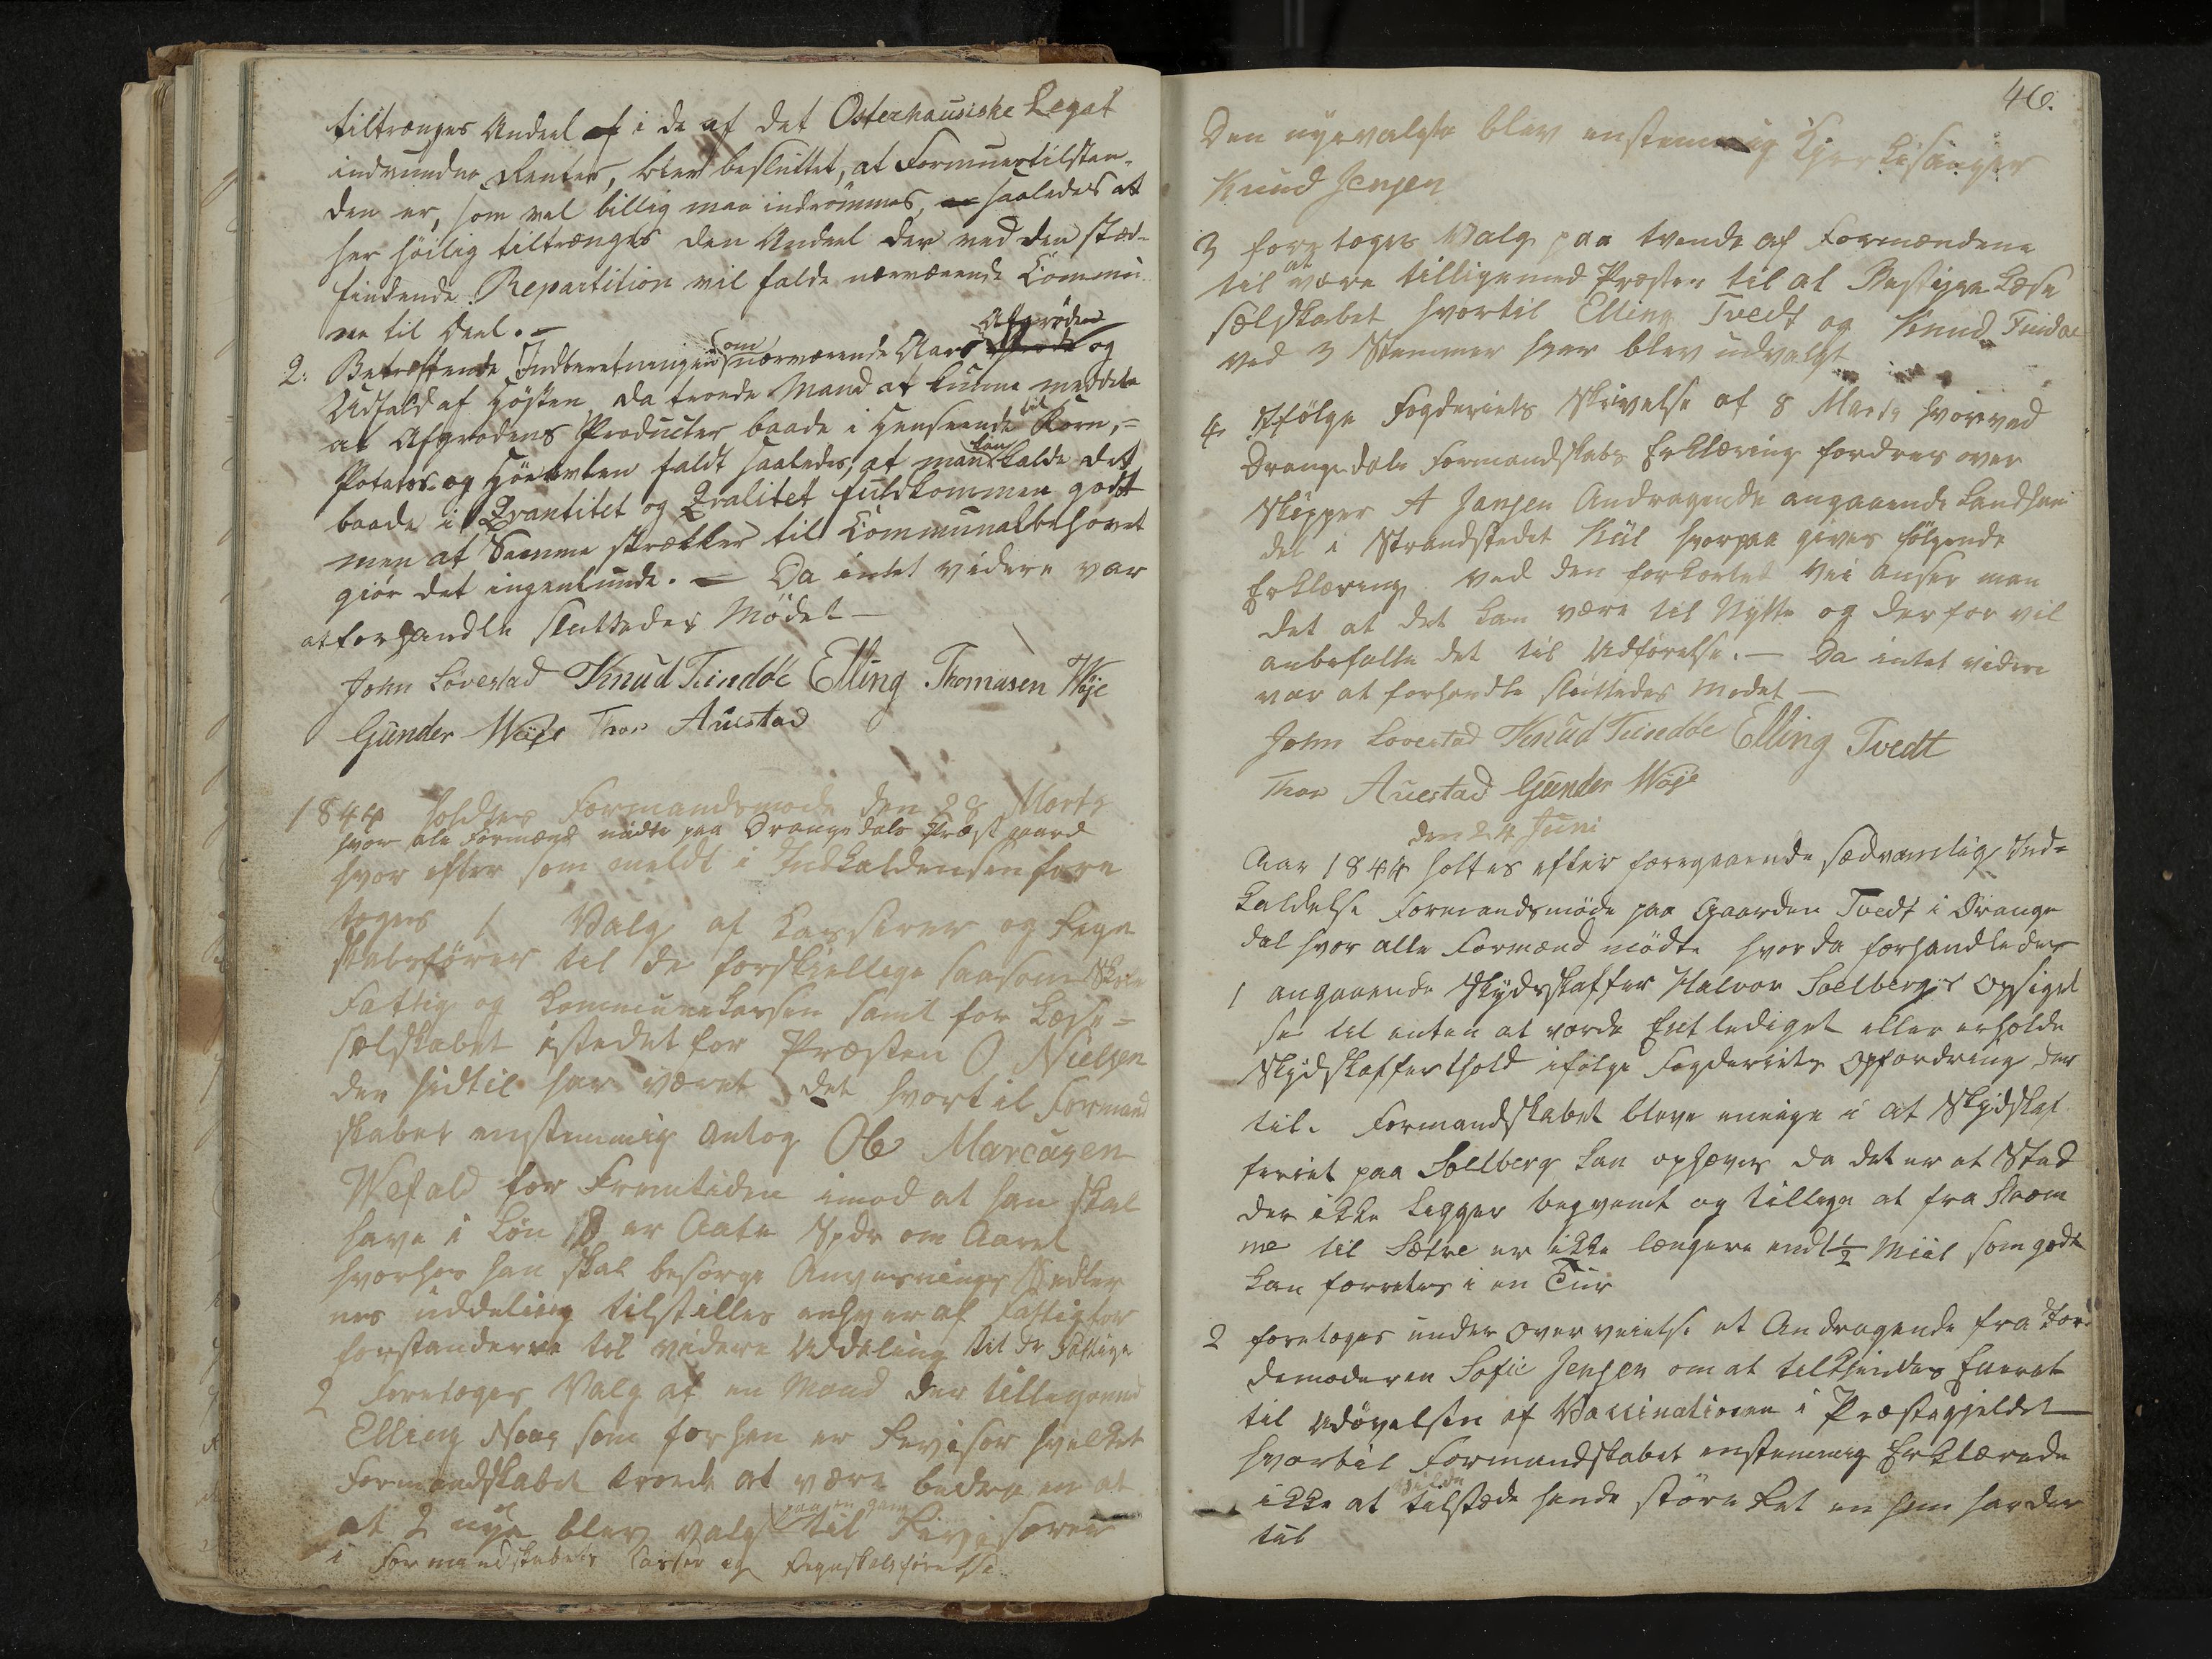 tiltrænges Andeel i de af det Osterhausiske Legat
indvundne Renter, blev besluttet, at Formuestilstan-
den er, som vel billig maa indrömmes, saaledes at
her höilig tiltrænges den Andeel der ved den sted-
findende Repartition vil falde nærværende Commu-
ne til Deel. —
2. Betræffende Indberetningen om nærværende Aars Afgröden og
Udfald af Hösten da troede Mand at kunne meddele
at Afgrödens Producter baade i Henseende til Korn,
Potetes- og Höeavlen faldt saaledes, at man kan kalde det
baade i Qvantitet og Qvalitet fuldkommen godt
men at Samme strækker til Communalbehovet
giör det ingenlunde. — Da intet videre var
at forhandle sluttedes Mödet —
John Lövestad Knud Tindöe Elling Thomasen Wöje
Gunder Wöje Thor Auestad
1844 holdtes Formandsmöde den 28 Marts
hvor ale Formænd mödte paa Drangedals Præstgaard
hvor efter som meldt i Indkaldensen fore
toges 1 Valg af Casserer og Regn
skabsförer til de forskjellige saasom Skole
Fattig og Kommunekassen samt for Læse-
selskabet istedet for Præsten O Nielsen
der hidtil har været det hvortil Formand
skabet enstemmig antog Ole Marcusen
Wefald for Fremtiden imod at han skal
have i Lön 8 er Aate Spdr om Aaret
hvorhos han skal besörge Anvisnings Sedler
nes uddeling tilstilles enhver af Fattigfor
forstanderne til videre Uddeling til de Fattige
2 Foretoges Valg af en Mand der tilligemed
Elling Noas som forhen er Revisor hvilket
Formandskabet troede at være bedre en at
at 2 nye blev valgt paa en gang til Revisorer
i Formandskabets Casser og Regnskabsförelse
46.
Den nyevalgte blev enstemmig Kjerkesanger
Knud Jensen
3 foretoges Valg paa tvende af Formændene
til at være tilligemed Præsten til at Bestyre Læse
selskabet hvortil Elling Tvedt og Knud Tindöe
ved 3 Stemmer hver blev udvalgt
4 Ifölge Fogderiets Skrivelse af 8 Marts hvorved
Drangedals Formandskabs Erklæring fordres over
Skipper A Jansen Andragende angaaende Landhan
del i Strandstedet Kiil hvorpaa gives fölgende
Erklæring ved den forkortet Vei anser man
det at det kan være til Nytte og derfor vil
anbefalle det til Udförelse. — Da intet videre
var at forhandle sluttedes Mödet —
John Lövestad Knud Tindöe Elling Tvedt
Thor Auestad Gunder Wöje
den 24 Juni
Aar 1844 holtes efter foregaaende sædvanlige Ind-
kaldelse Formandsmöde paa Gaarden Tvedt i Drange
dal hvor alle Formænd mödte hvor da forhandledes
1 angaaende Skydsskaffer Halvor Soelbergs Opsigel
se til enten at vorde Entlediget eller erholde
Skydskafferthold ifölge Fogderiets Opfordring der
til. Formandskabet bleve enige i at Skydskaf
feriet paa Soelberg kan ophæves da det er at Sted
der ikke ligger beqvemt og tillige at fra Stræm
me til Sætre er ikke længere end 1 1/2 Miil som godt
kan forrettes i en Tur
2 foretoges under overveielse et Andragende fra Jor
demoderen Sofie Jensen om at tilkjendes Eneret
til Udövelsen af Vaccinationen i Præstegjeldet
hvortil Formandskabet enstemmig Erklærede
ikke at vilde tilstæde hende större Ret en hun har der
til